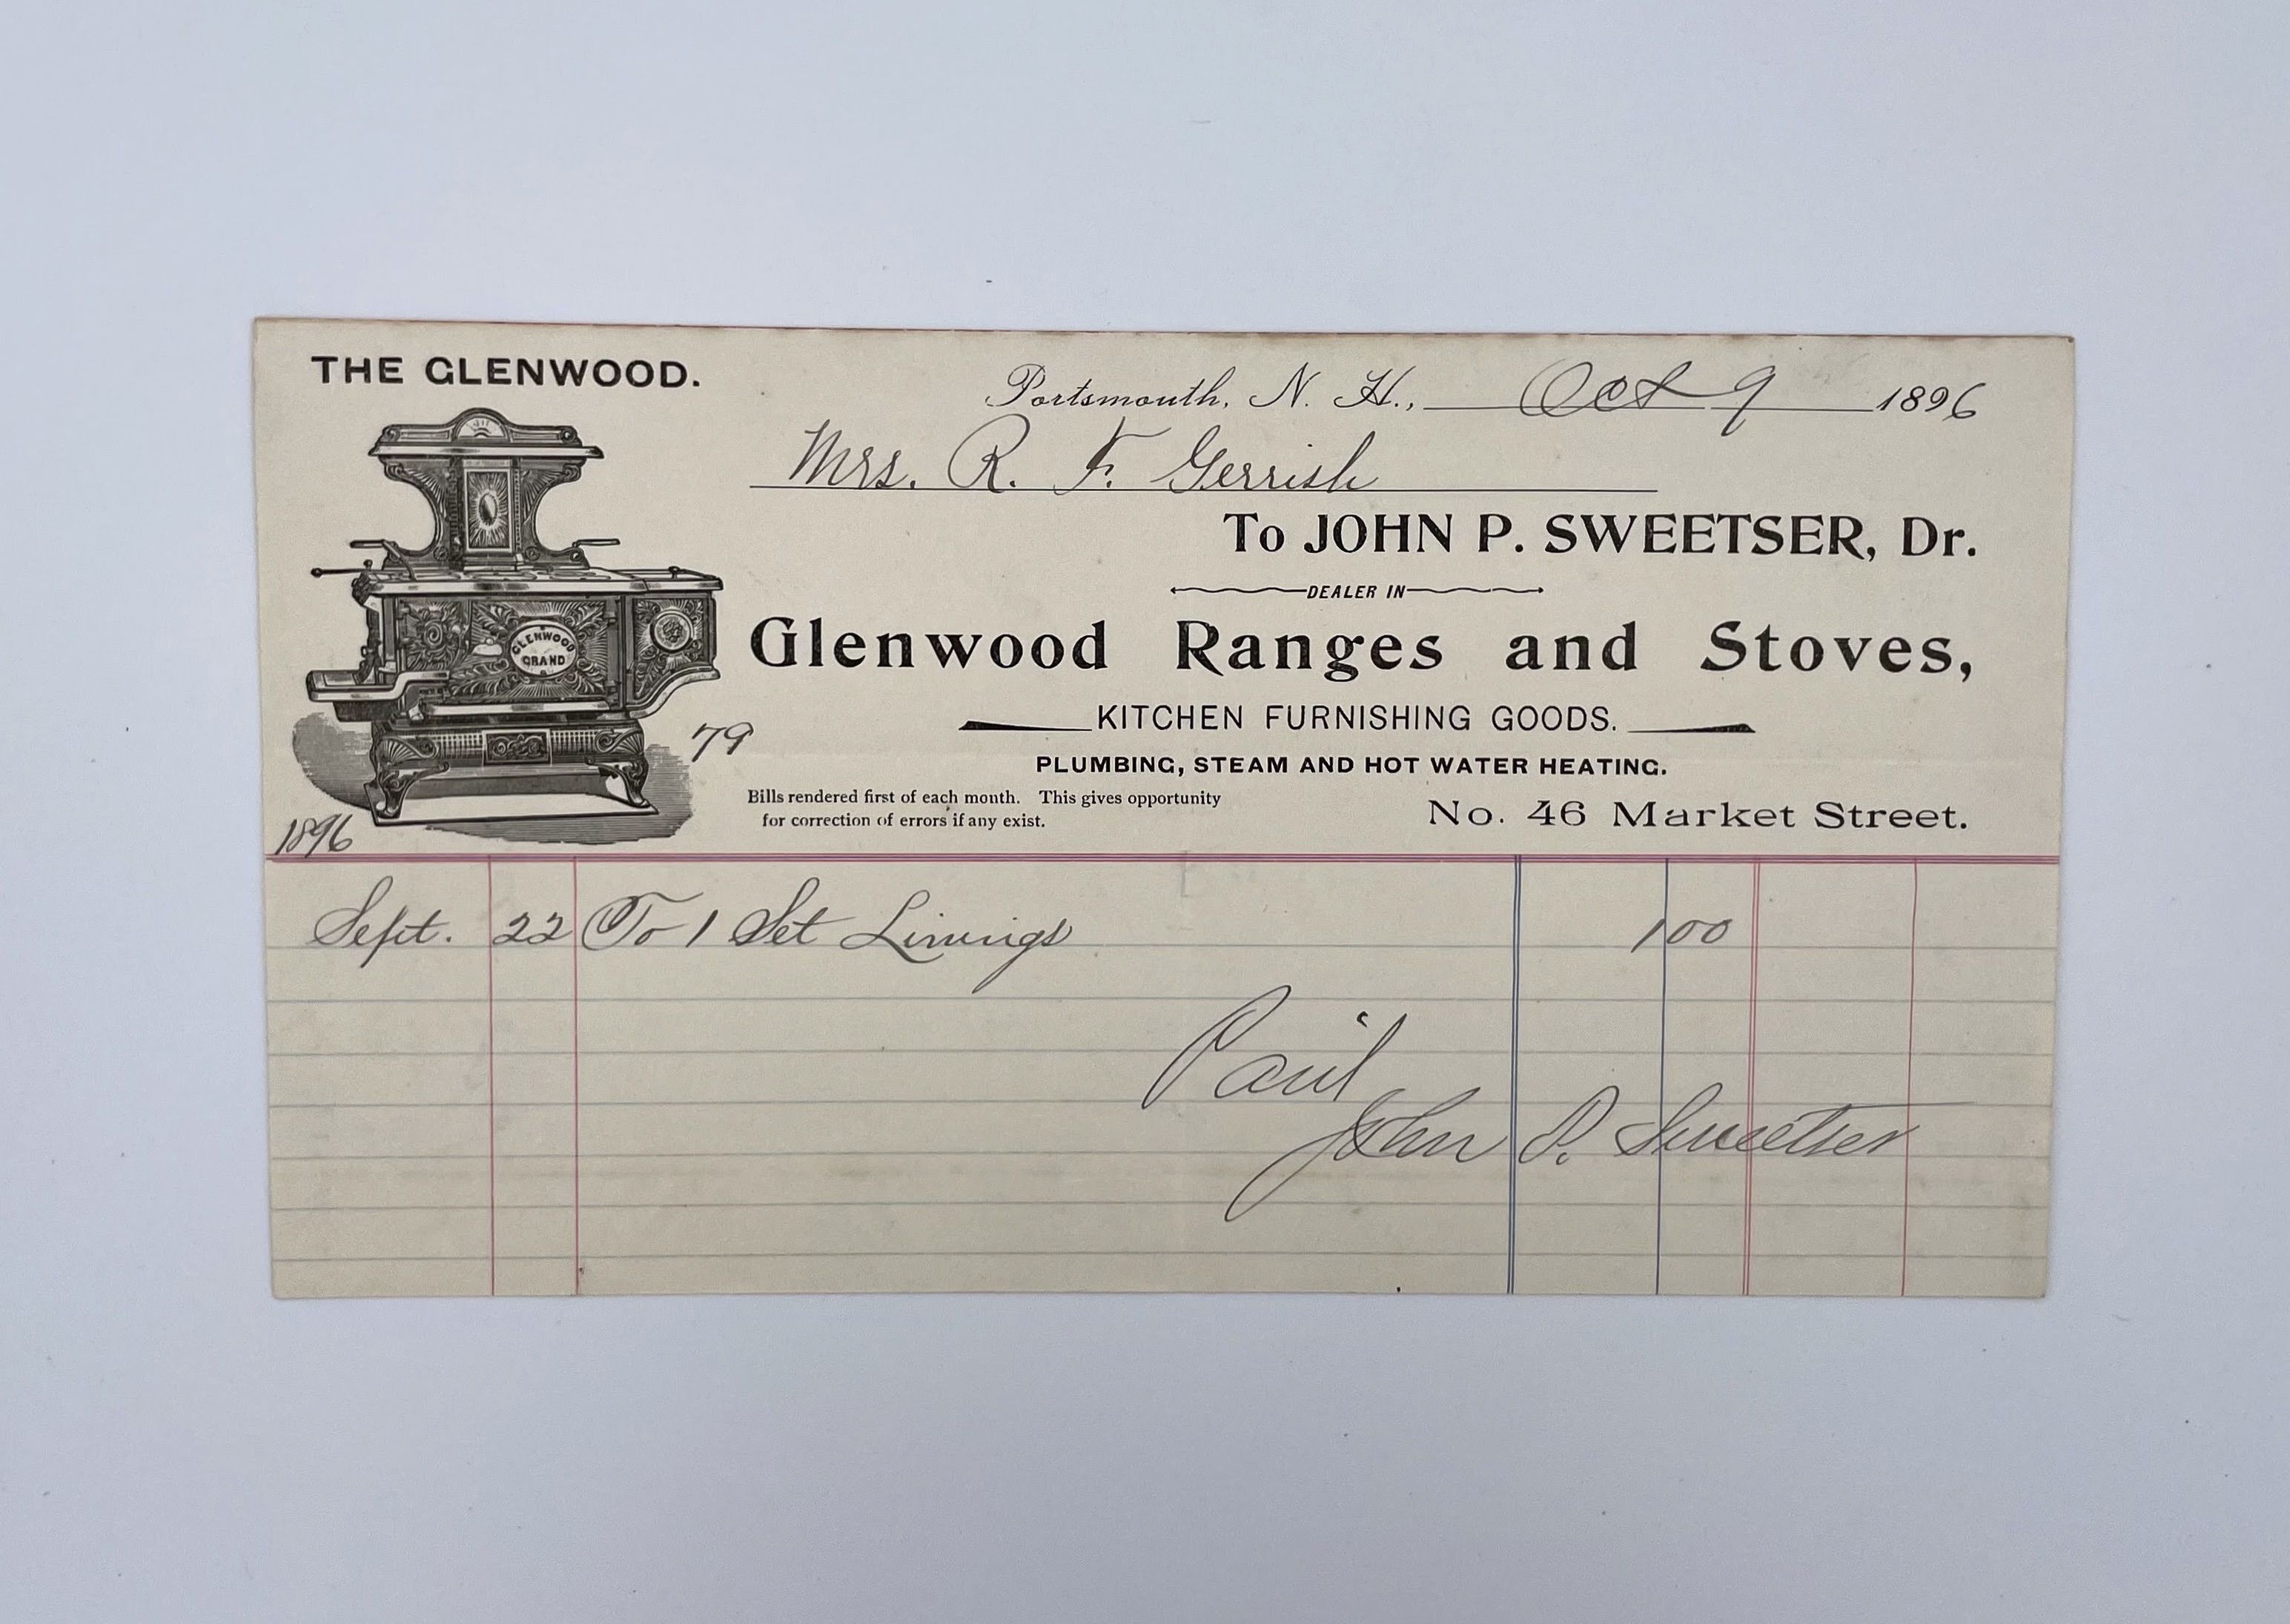 THE GLENWOOD.
Portsmouth, N. H., Oct 9 1896
Mrs. R. F. Gerrish
To JOHN P. SWEETSER, Dr.
DEALER IN
Glenwood Ranges and Stoves,
GLENWOOD
GRAND
KITCHEN FURNISHING GOODS.
79
PLUMBING, STEAM AND HOT WATER HEATING.
Bills rendered first of each month. This gives opportunity
for correction of errors if any exist.
No. 46 Market Street.
1896
Sept. 22 To 1 Set Linings 1 00
Paid
John P. Sweetser